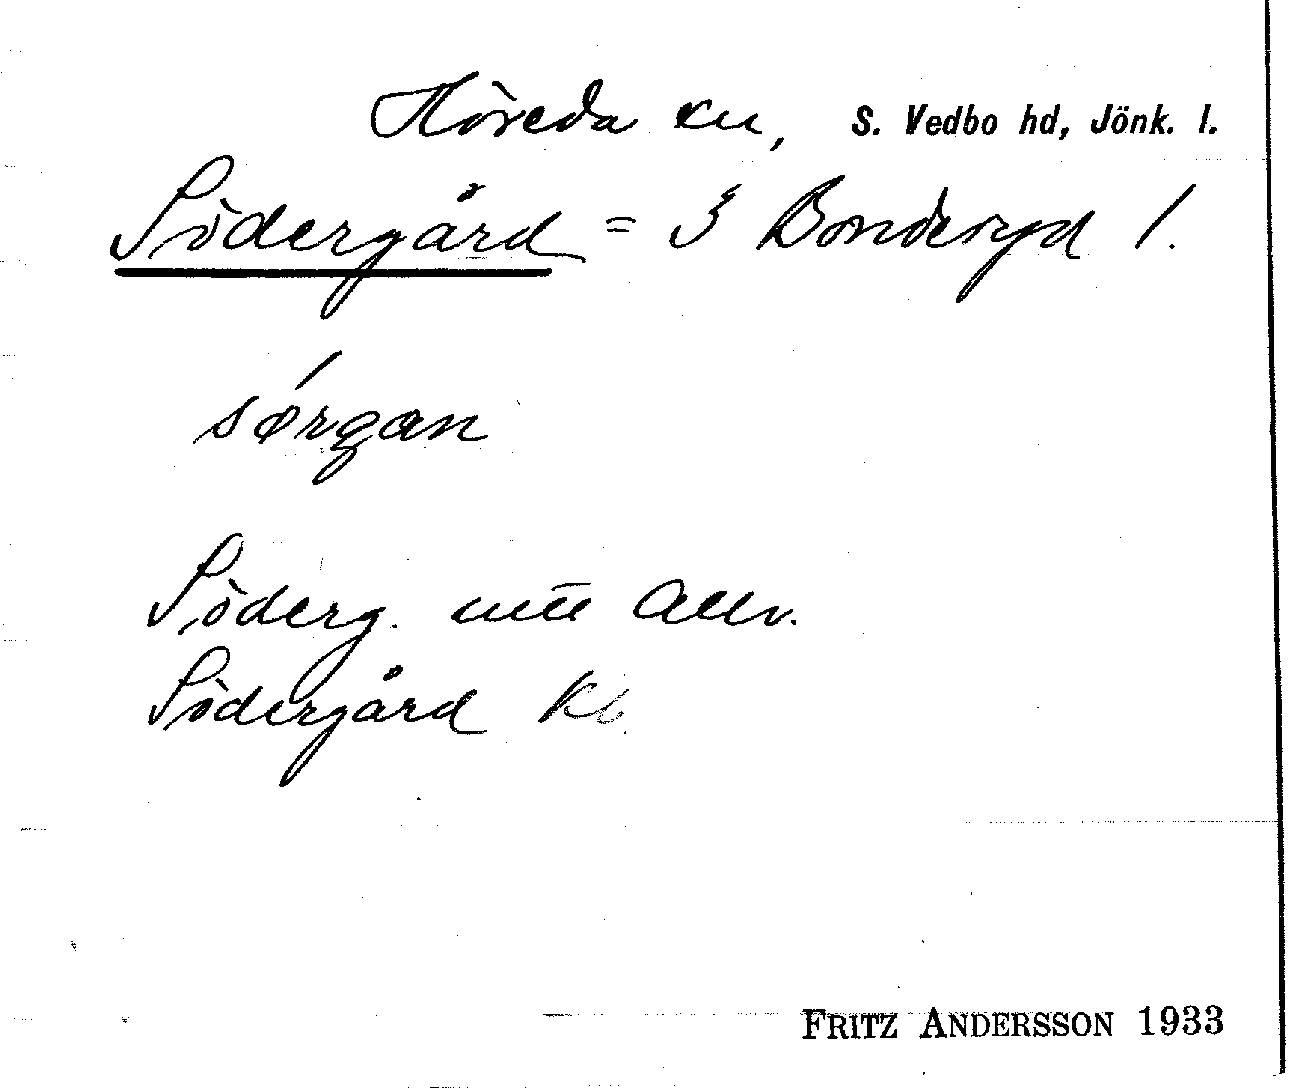 Höreda sn, S. Vedbo hd, Jönk. l.
Södergård = i Bonderyd 1.
sørgan
Söderg. uttal allm.
Södergård Kb
FRITZ ANDERSSON 1933